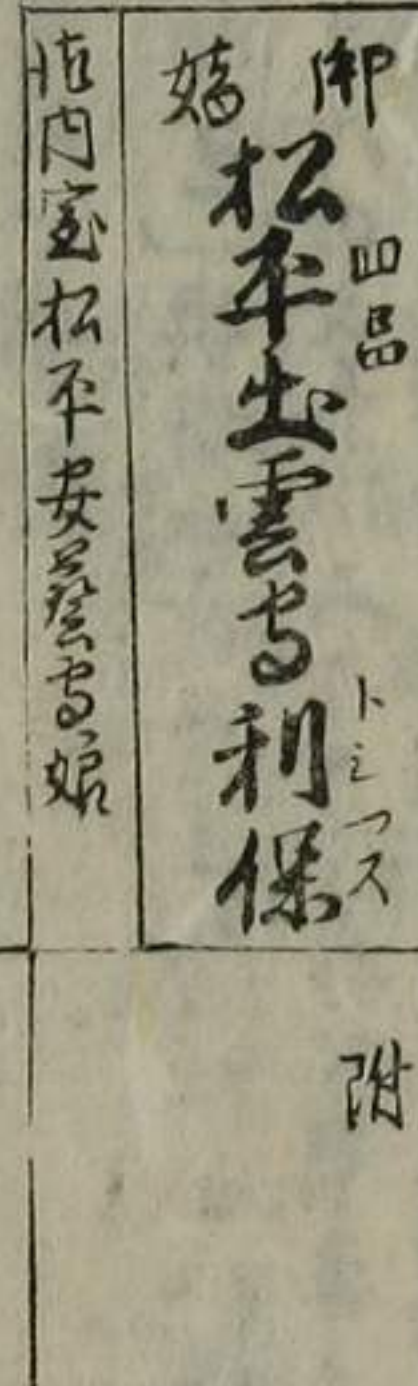 柳
嫡
四品
松平出雲守利保
トシヤス
内室松平安藝守娘
附